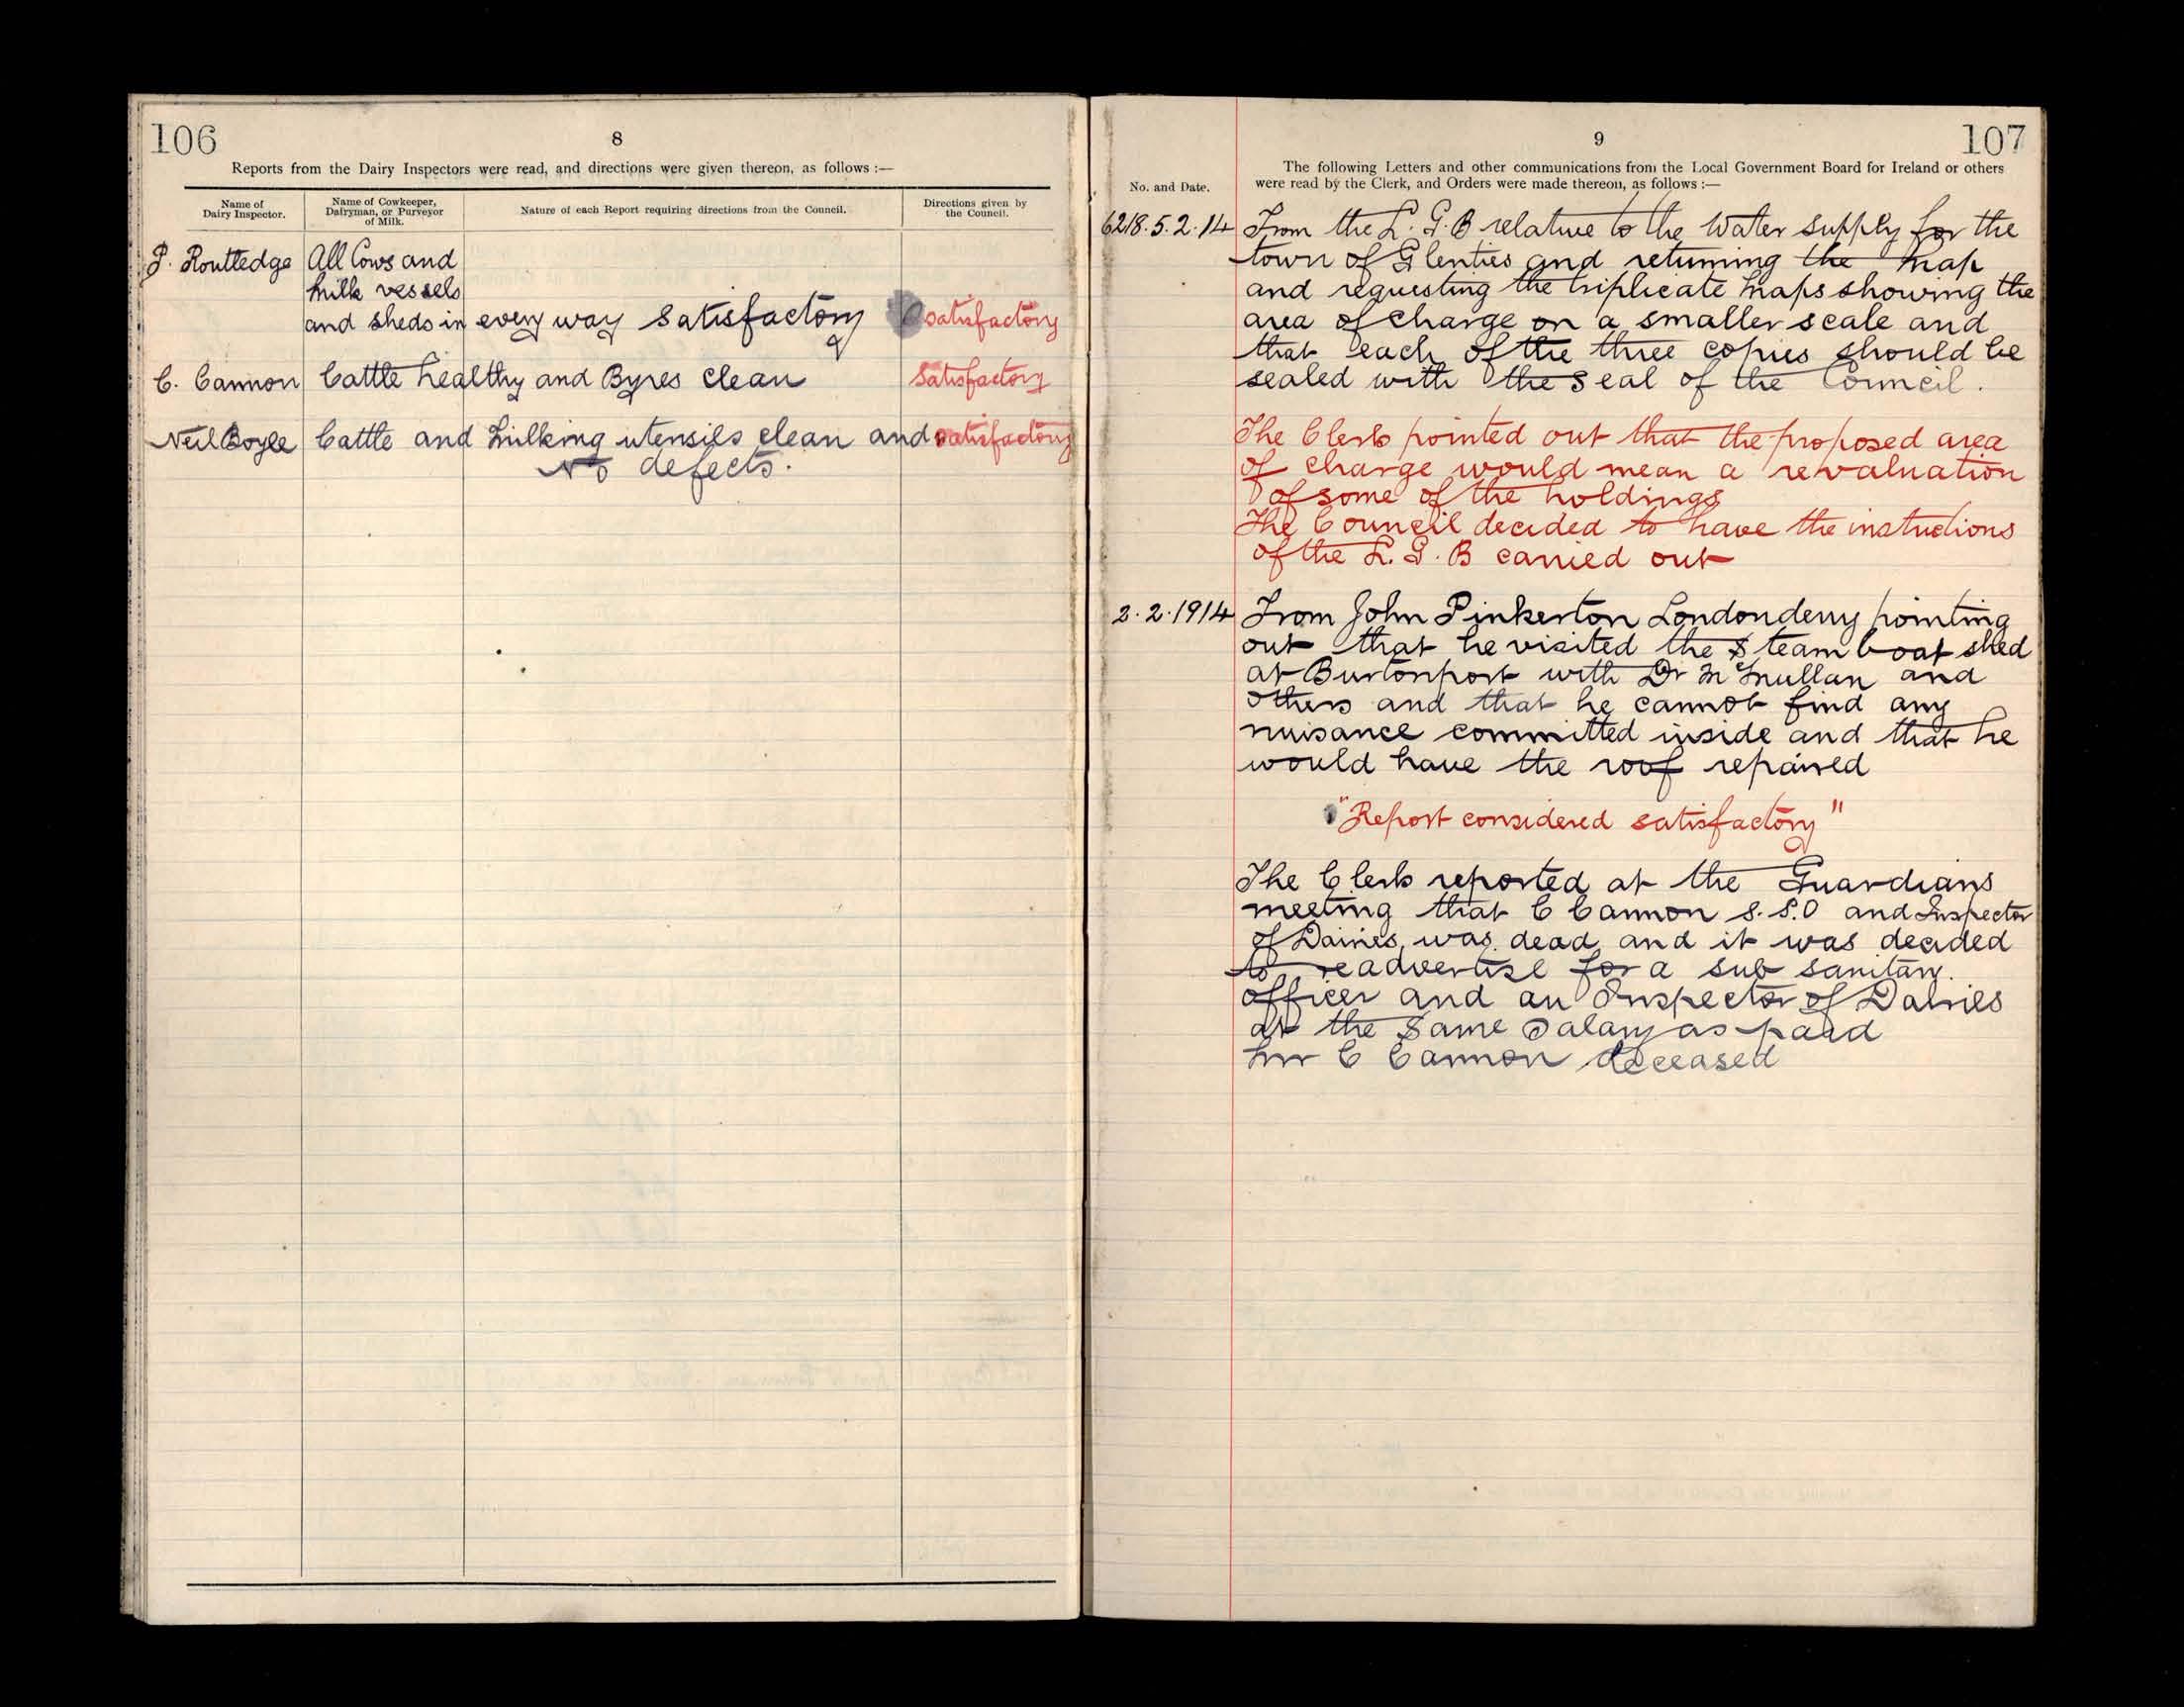 106
8
Reports from the Dairy Inspectors were read, and directions were given thereon, as follows :—
Name of Dairy Inspector.
Name of Cowkeeper, Dairyman, or Purveyor of Milk.
Nature of each Report requiring directions from the Council.
Directions given by the Council.
P. Routledge All Cows and
milk vessels
and sheds in every way satisfactory satisfactory
C. Cannon Cattle healthy and Byres clean satisfactory
Neil Boyle Cattle and milking utensils clean and satisfactory
No defects.
9
107
The following Letters and other communications from the Local Government Board for Ireland or others
No. and Date. were read by the Clerk, and Orders were made thereon, as follows :—
6218. 5. 2. 14 From the L. G. B relative to the Water supply for the
town of Glenties and returning the map
and requesting the triplicate maps showing the
area of charge on a smaller scale and
that each of the three copies should be
sealed with the seal of the Council.
The Clerk pointed out that the proposed area
of charge would mean a revaluation
of some of the holdings
The Council decided to have the instuctions
of the L. G. B carried out
2. 2. 1914 From John Pinkerton Londonderry pointing
out that he visited the steam boat shed
at Burtonport with Dr McMullan and
others and that he cannot find any
nuisance committed inside and that he
would have the roof repaired
"Report considered satisfactory"
The Clerk reported at the Guardians
meeting that C Cannon S. S. O and Inspector
of Dairies, was dead and it was decided
to readvertise for a sub sanitary.
officer and an Inspector of Dairies
at the same salary as paid
Mr C Cannon deceased